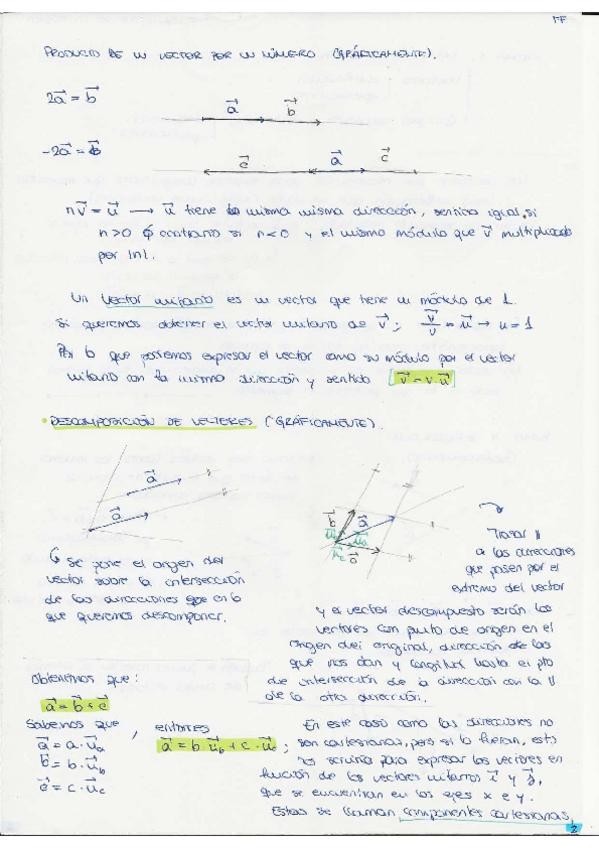 FF
PRODUCTO DE UN VECTOR POR UN NÚMERO (GRÁFICAMENTE).
2a⃗ = b⃗
a⃗ b⃗
-2a⃗ = b⃗
c⃗ a⃗ c⃗
n v⃗ = u⃗ → u⃗ tiene la misma misma dirección, sentido igual si
n>0 ó contrario si n<0 y el mismo módulo que v⃗ multiplicado
por |n|.
Un vector unitario es un vector que tiene un módulo de 1.
Si queremos obtener el vector unitario de v⃗: v⃗/v = u⃗ → u = 1
Por lo que podremos expresar el vector como su módulo por el vector
unitario con la misma dirección y sentido v⃗ = v·u⃗
• DESCOMPOSICIÓN DE VECTORES (GRÁFICAMENTE).
a⃗
a⃗
b⃗ a⃗
u⃗b u⃗a
u⃗c c⃗
Trazar ||
a las direcciones
que pasen por el
extremo del vector
Se pone el origen del
vector sobre la intersección
de las direcciones en
que queremos descomponer.
y el vector descompuesto serán los
vectores con punto de origen en el
origen del original, dirección de las
que nos dan y longitud hasta el pto
de intersección de la dirección con la ||
de la otra dirección.
Obtenemos que:
a⃗ = b⃗ + c⃗
Sabemos que
a⃗ = a·u⃗a
b⃗ = b·u⃗b
c⃗ = c·u⃗c
, entonces
a⃗ = b·u⃗b + c·u⃗c ;
En este caso como las direcciones no
son cartesianas, pero si lo fueran, esto
nos serviría para expresar los vectores en
función de los vectores unitarios i⃗ y j⃗,
que se encuentran en los ejes x e y.
Estas se llaman componentes cartesianas.
2